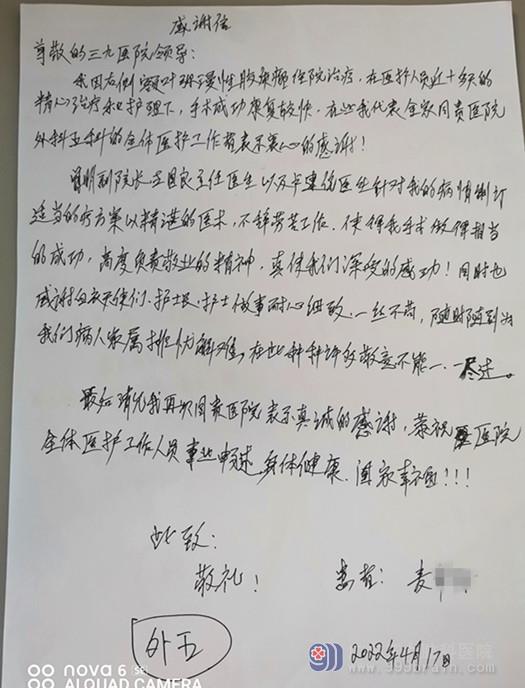 感谢信
尊敬的三九医院领导：
我因右侧额叶 慢性 住院治疗，在医护人员近十天的
精心治疗和护理下，手术成功康复较快。在此我代表全家同贵医院
外科五科的全体医护工作者表示衷心的感谢！
明副院长、 主任医生以及卓建 医生针对我的病情制订
适当的疗方案以精湛的医术，不辞劳苦工作。使得我手术做得相当
的成功，高度负责敬业的精神，真使我们深受的感动！同时也
感谢白衣天使们、护士长、护士做事耐心细致、一丝不苟，随时随到为
我们病人家属排忧解难，在此种种许多敬意不能一一尽述。
最后请允我再次同贵医院表示真诚的感谢，恭祝 医院
全体医护工作人员事业畅达 身体健康、阖家幸福！！！
此致：
敬礼！
患者：麦
外五
2022年4月17日
nova 6 SE
AI QUAD CAMERA
医院
www.999brain.com